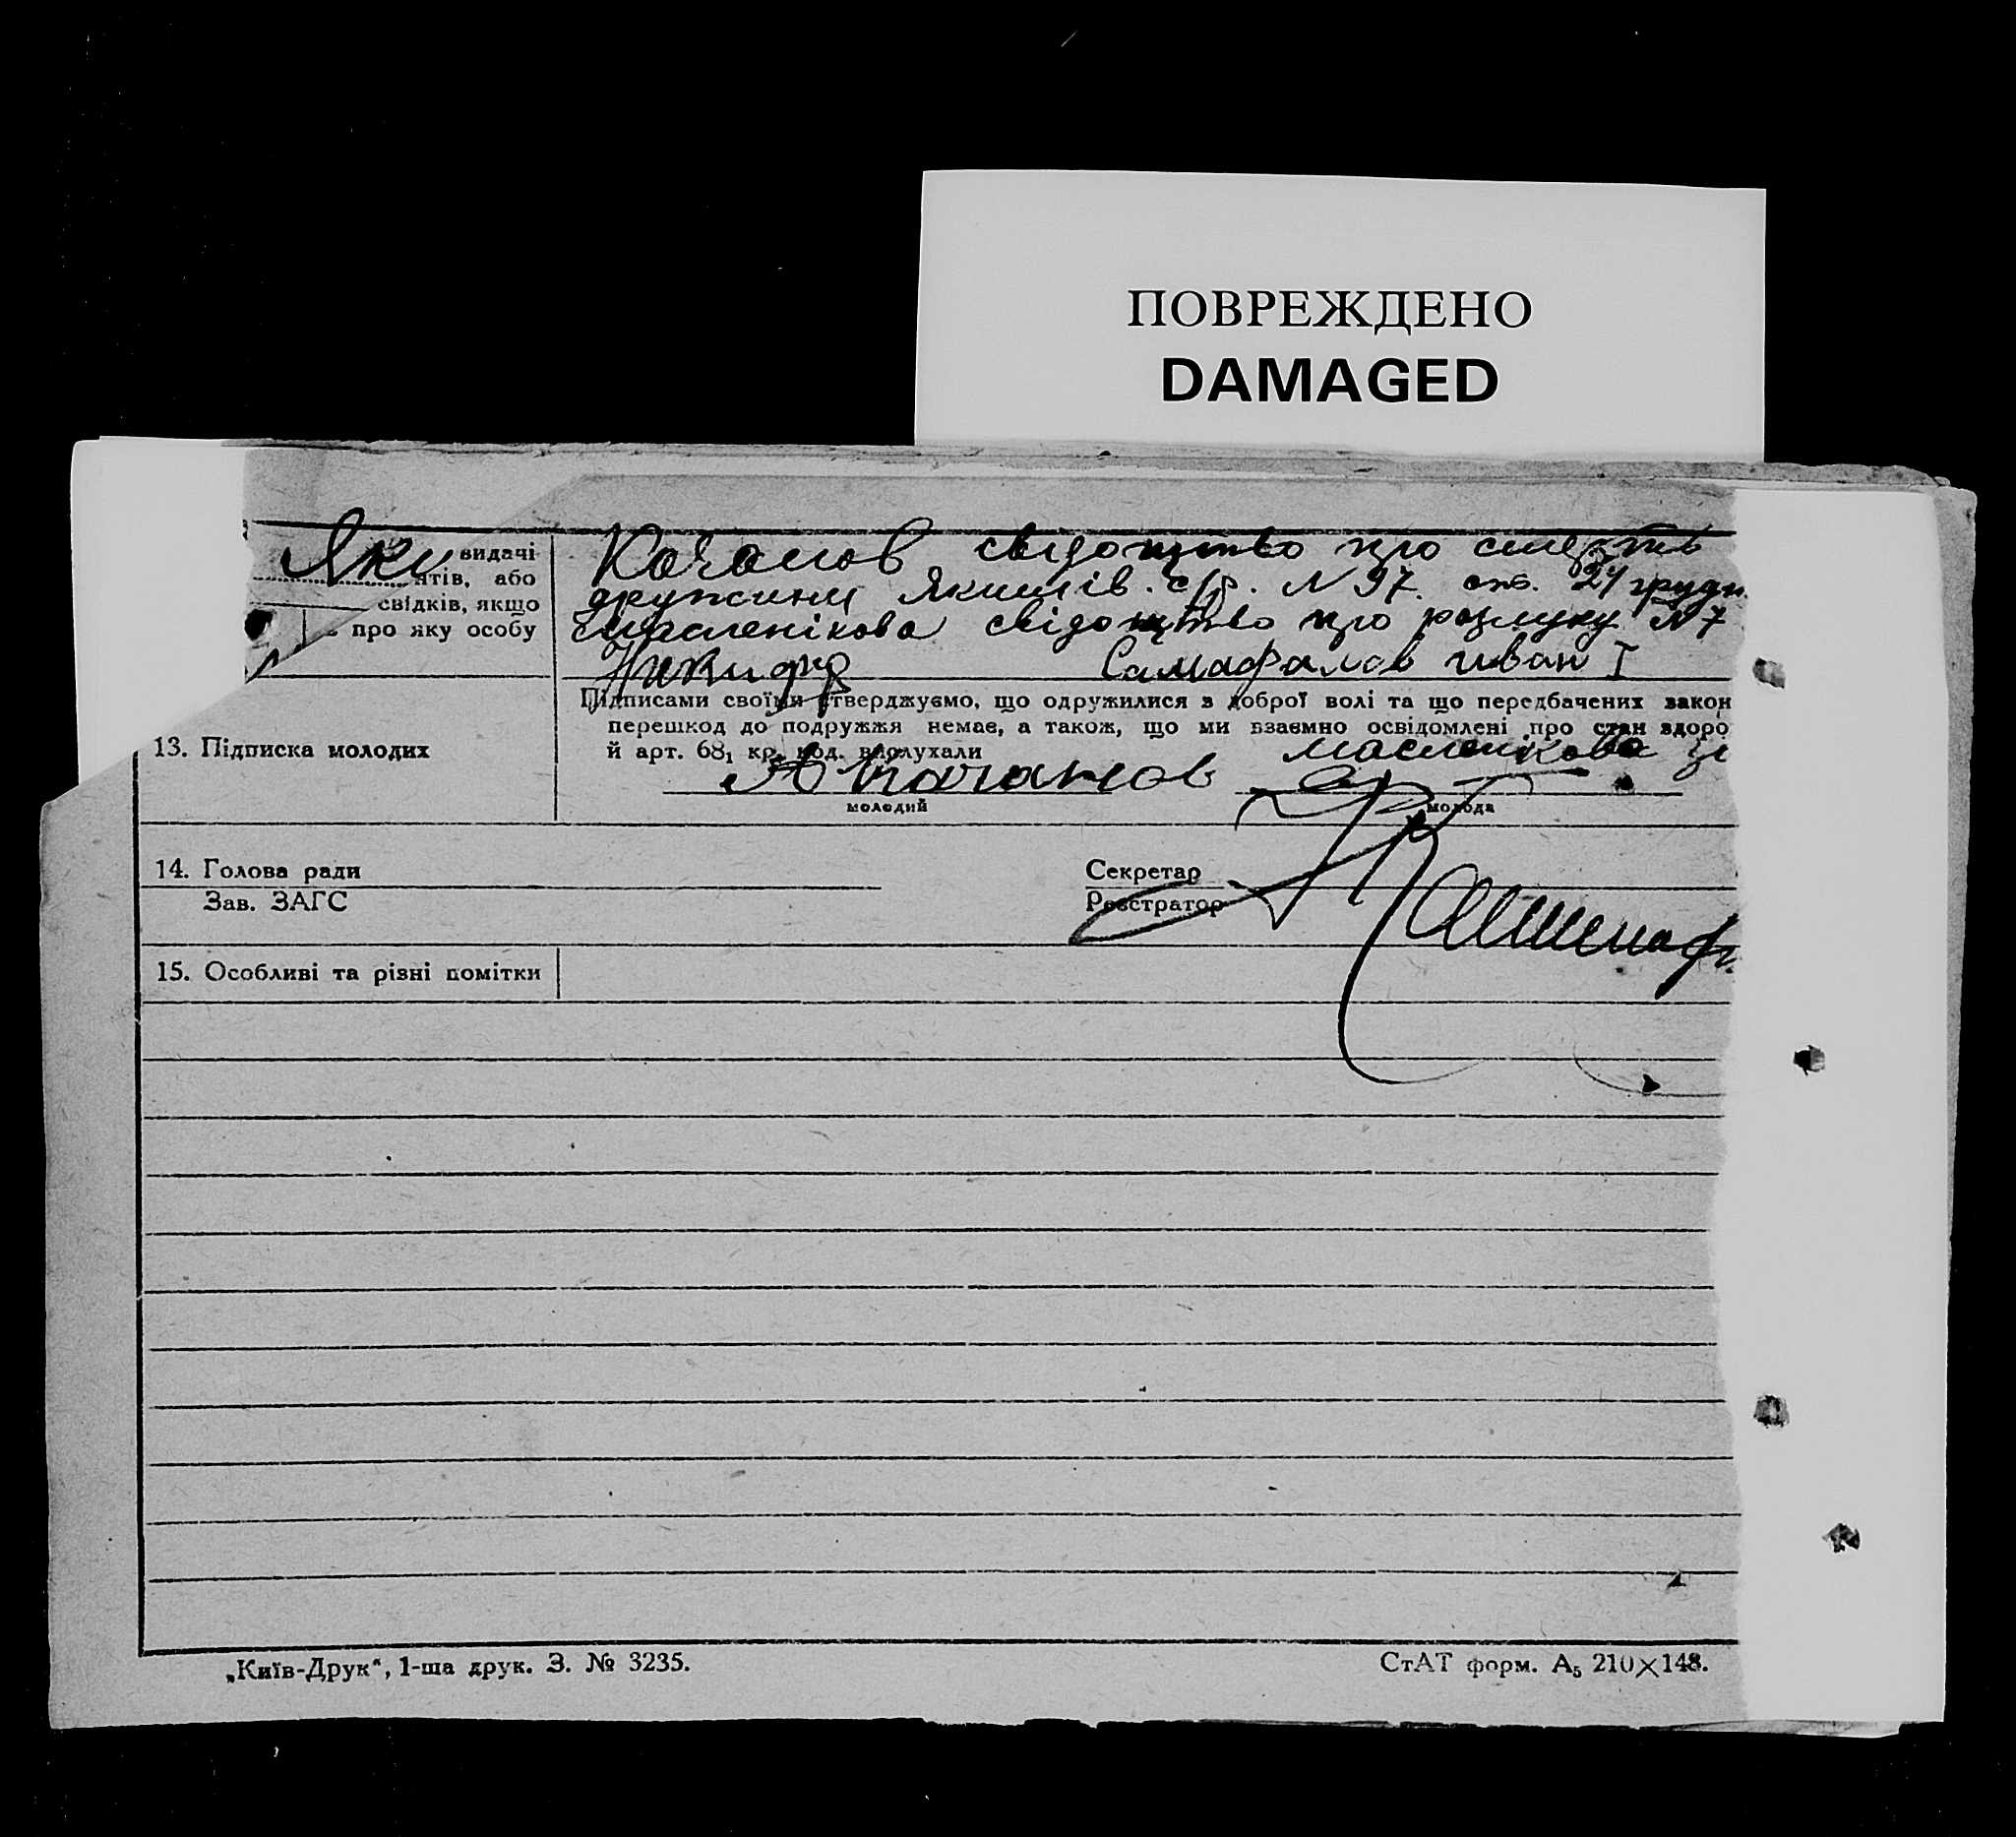 ПОВРЕЖДЕНО
DAMAGED
Яки видачі
ятів, або
свідків, якщо
про яку особу
Качанов свідоцтво про смерть
дружини Якимів. с/р. N 97. від. 24 грудн
Масленікова свідоцтво про розлуку N 7
Никифр Самафалов иван I
Підписами своїми стверджуємо, що одружилися з доброї волі та що передбачених закон
перешкод до подружжя немає, а також, що ми взаємно освідомлені про стан здоро
й арт. 68₁ кр. код. вислухали
13. Підписка молодих
А Качанов масленкова зі
молодий молода
14. Голова ради Секретар
Зав. ЗАГС Реєстратор
15. Особливі та різні помітки
„Київ-Друк“, 1-ша друк. З. № 3235. СтАТ форм. А₅ 210×148.